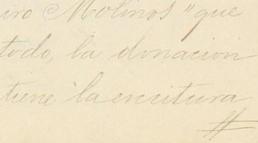 Molinos" que
todo, la donacion
tiene la escritura